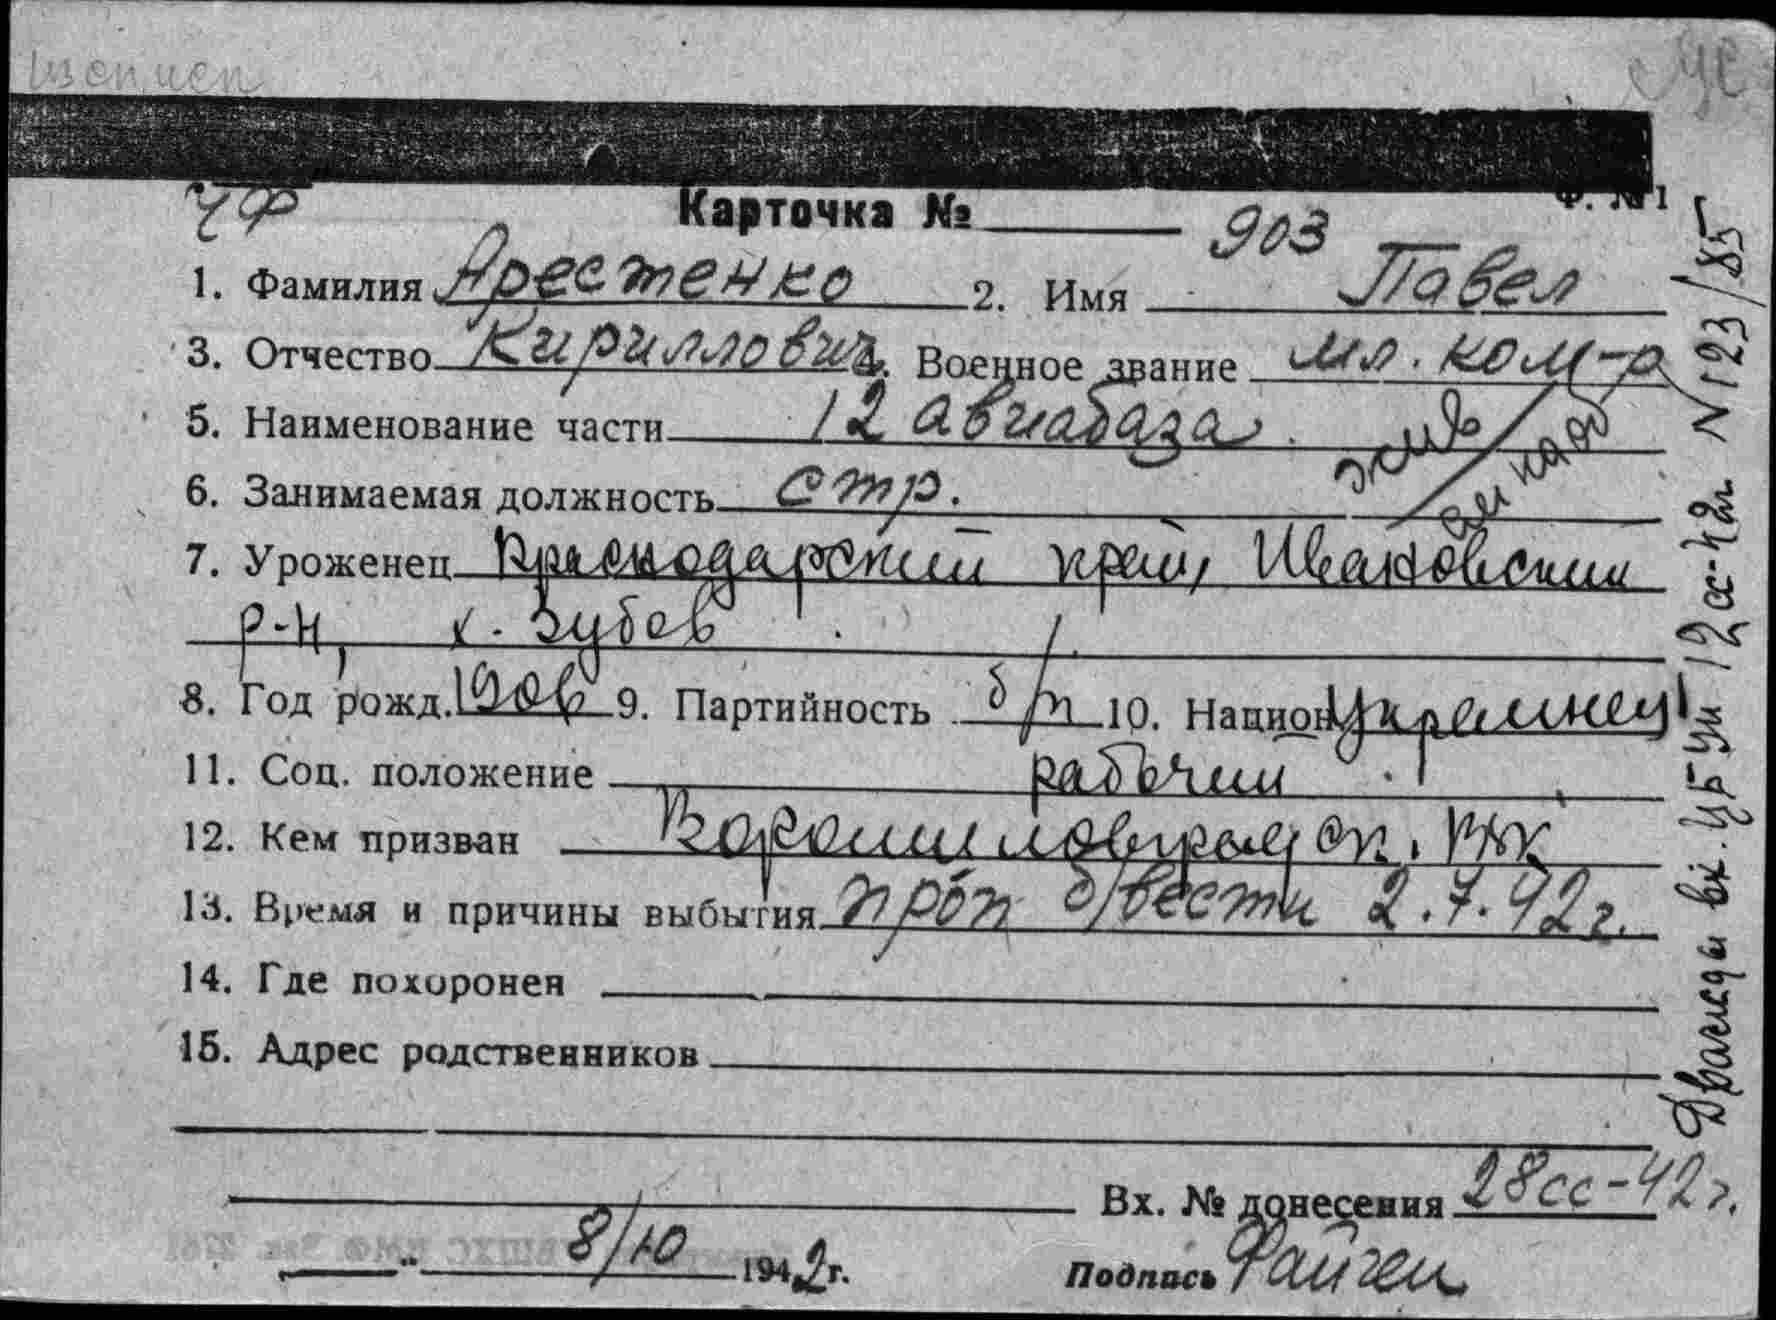 ЧФ
Карточка №
Ф. №1
903
1. Фамилия Арестенко 2. Имя Павел
3. Отчество Кириллович 4. Военное звание мл. ком-р
5. Наименование части 12 авиабаза.
6. Занимаемая должность стр.
жив
7. Уроженец Краснодарский край, Ивановский
р-н, х. Зубов
8. Год рожд. 1906 9. Партийность б/п 10. Национ. Украинец
11. Соц. положение рабочий
12. Кем призван Ворошиловград ск. РВК
13. Время и причины выбытия проп б/вести 2.7.42г.
14. Где похоронен
15. Адрес родственников
Вх. № донесения 28сс-42г.
" 8/10 1942г.
Подпись
Дважды вх. 12сс-42г N 123/85